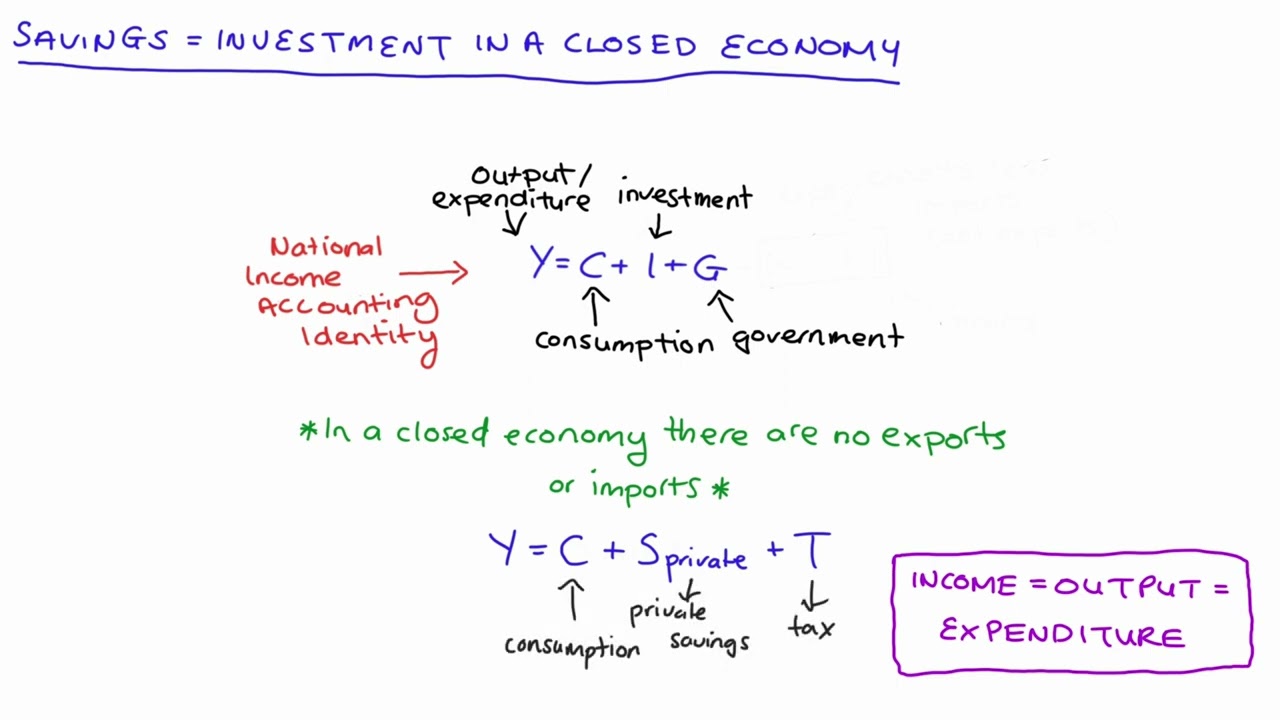 SAVINGS = INVESTMENT IN A CLOSED ECONOMY
output/
expenditure
investment
National
Income
Accounting
Identity
Y = C + I + G
consumption
government
*In a closed economy there are no exports
or imports*
Y = C + Sprivate + T
consumption
private
savings
tax
INCOME = OUTPUT =
EXPENDITURE